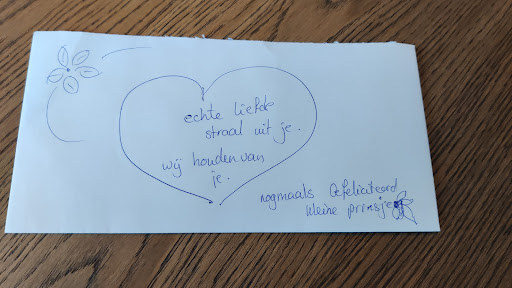 echte liefde
straal uit je.
wij houden van
je.
nogmaals Gefeliciteerd
kleine prinsje